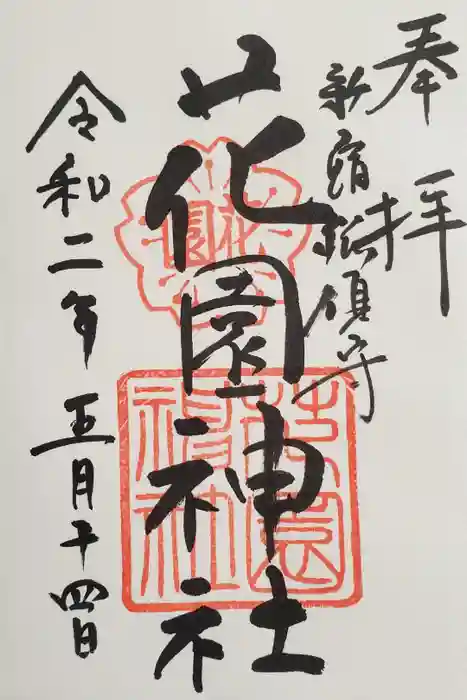 奉拝
新宿総鎮守
花園神社
令和二年五月十四日
花園神社